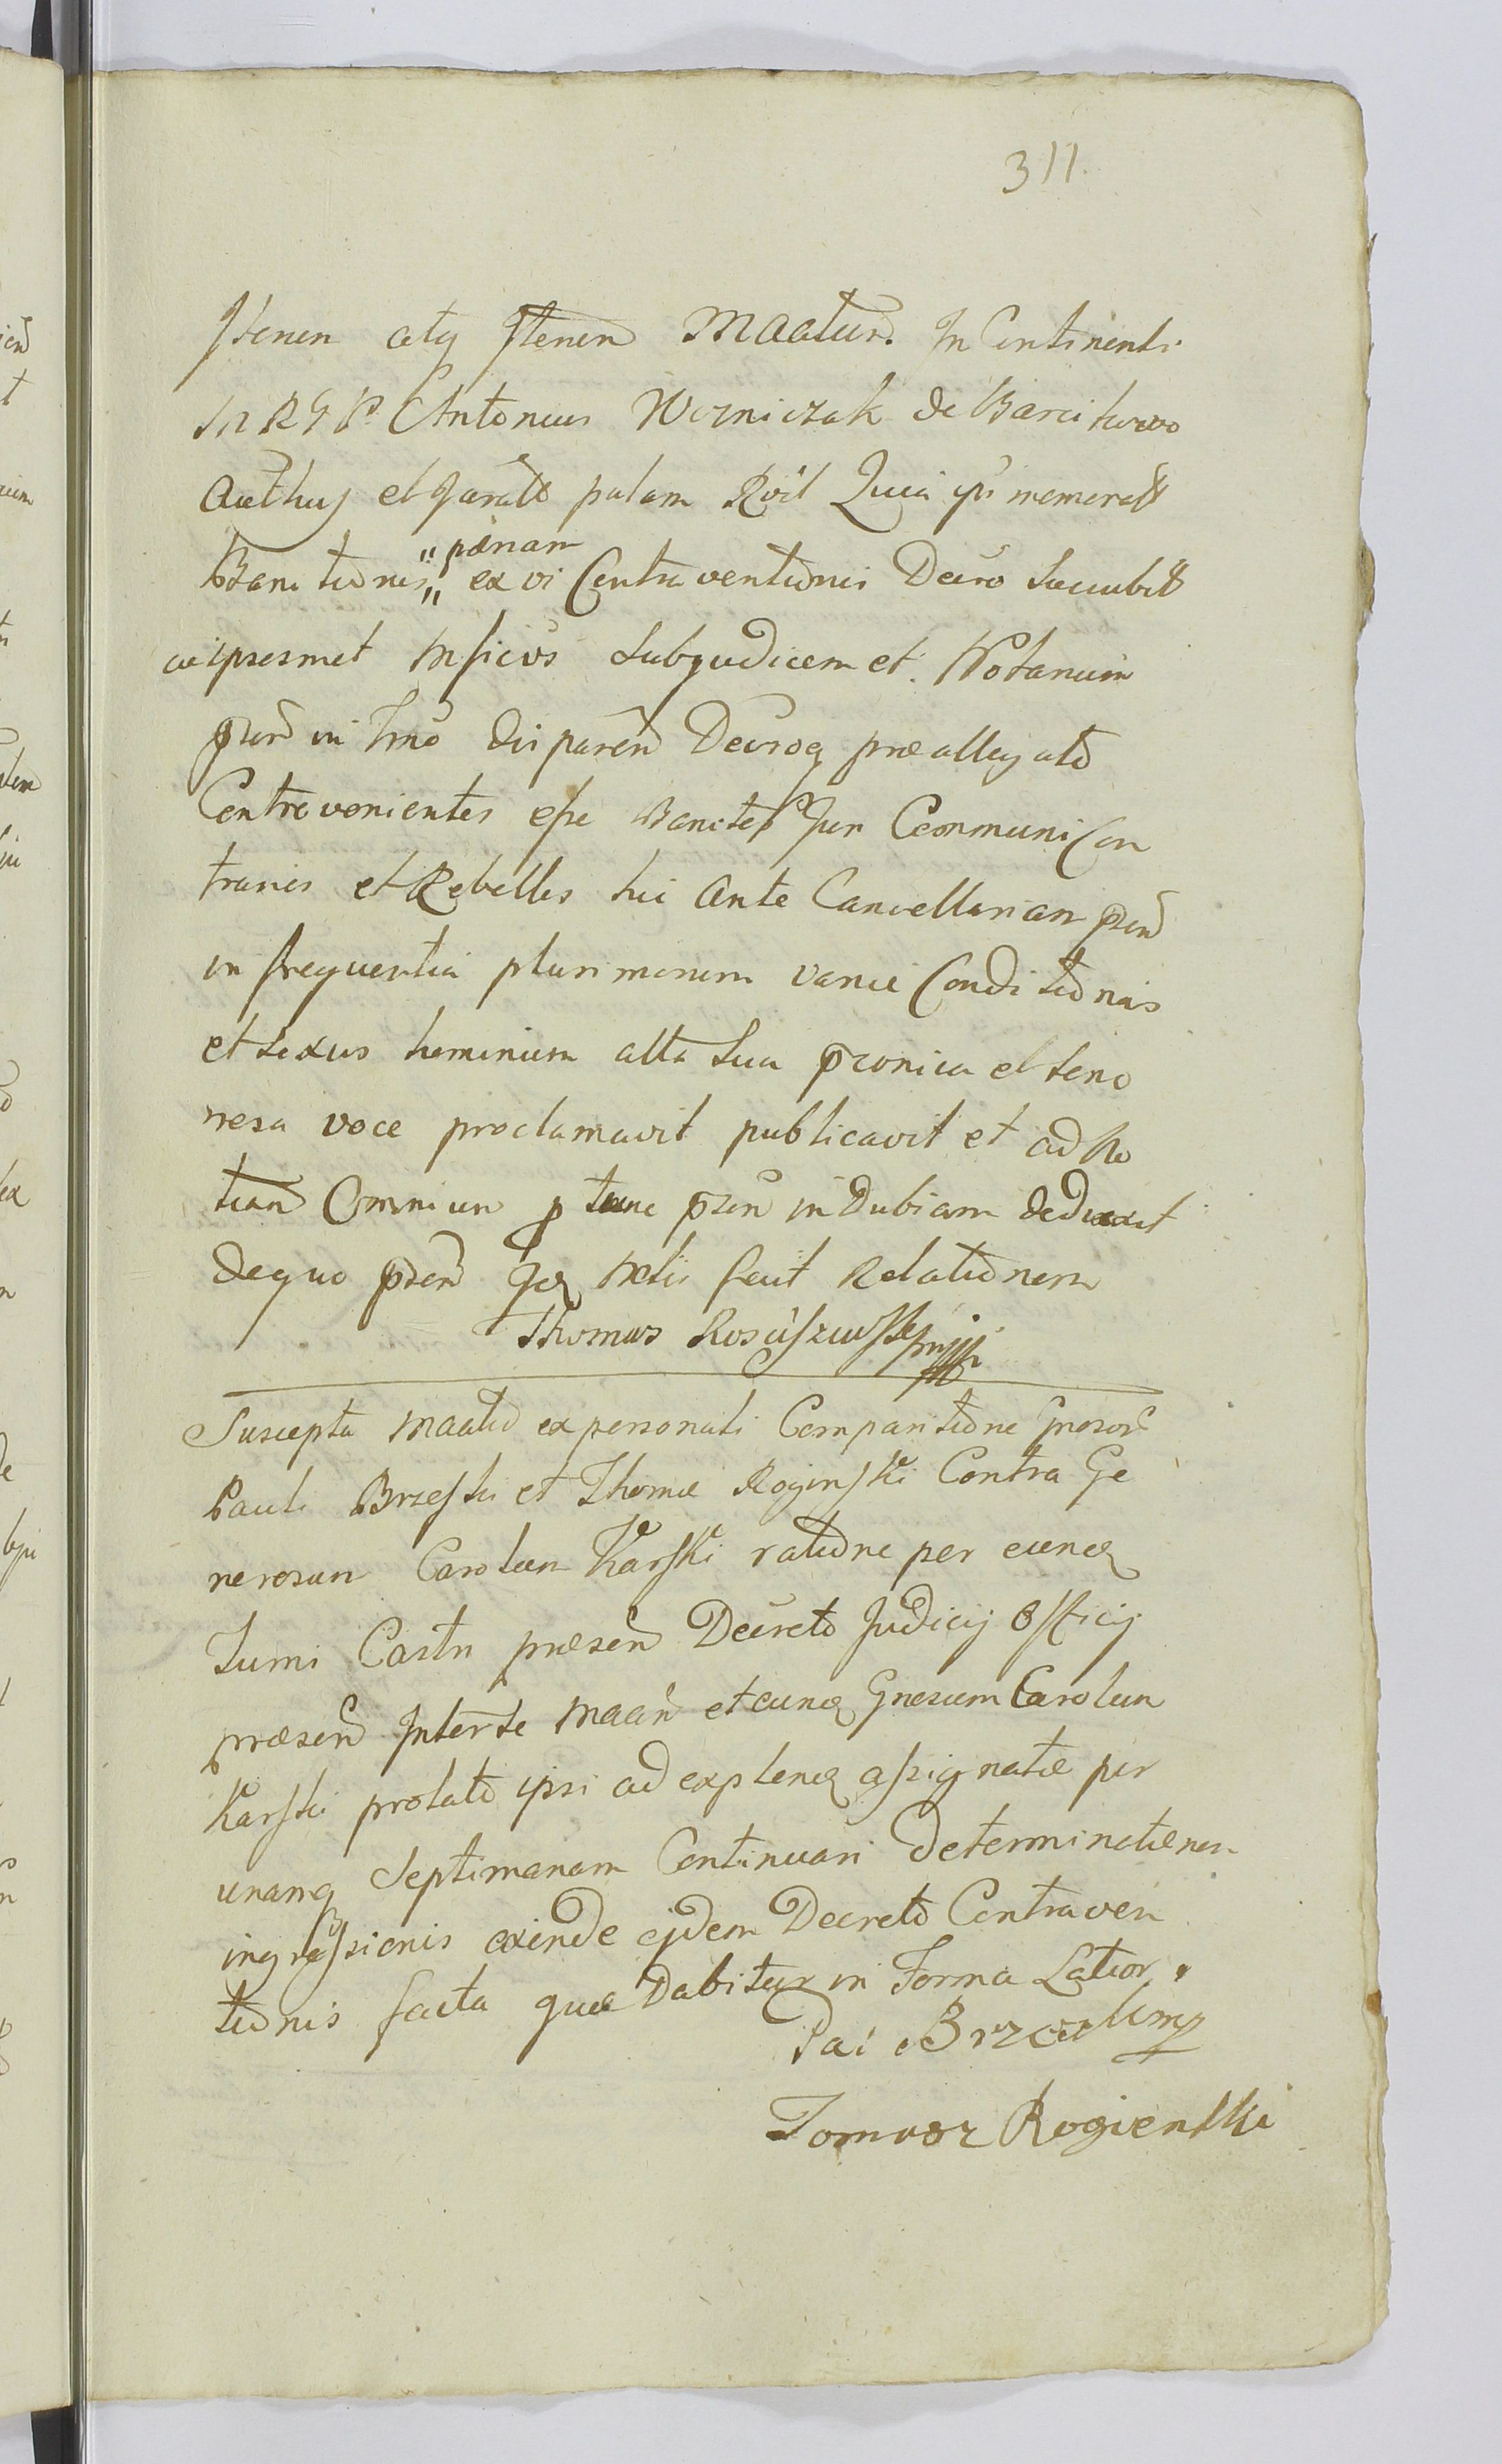 311.
Itenen atq Itenen Maatur. In Continenti
Antonius Wozniczak de Barcikowo
Authus et Jurato palam Rvit Quia ipsi memorati
"pænam
Banitionis" ex vi Contraventionis Decro Succubit
ac ipsesmet Mficos Subjudicem et Notarium
pzen in Tmo disparen Decroq præallegato
Contravenientes esse Banitos Jur Communi Con
trarios et Rebelles hic Ante Cancellariam pzen
in frequentia plurimorum variæ Conditionis
et sexus hominum alta sua pzonica et sono
rosa voce proclamavit publicavit et ad No
tiam Omnium p tunc pzen indubiam deduxit
de quo pzen fecit Relationem
Thomas
Suscepta Maatio ex personali Comparitione Gnosor
Pauli Brzeski et Thomæ Roginski Contra Ge
nerosum Carolum Karski ratione per eunq
Sumi Castri præsen Decreto Judicij Officij
præsen Inter se Maan et eunq Gnosum Carolum
Karski prolato ipsi ad explenq assignatæ per
unamq Septimanam Continuari determinationem
ingressionis exinde ejdem Decreto Contraven
tionis facta quæ Dabitur in Forma Latior.
Tomasz Rogienski